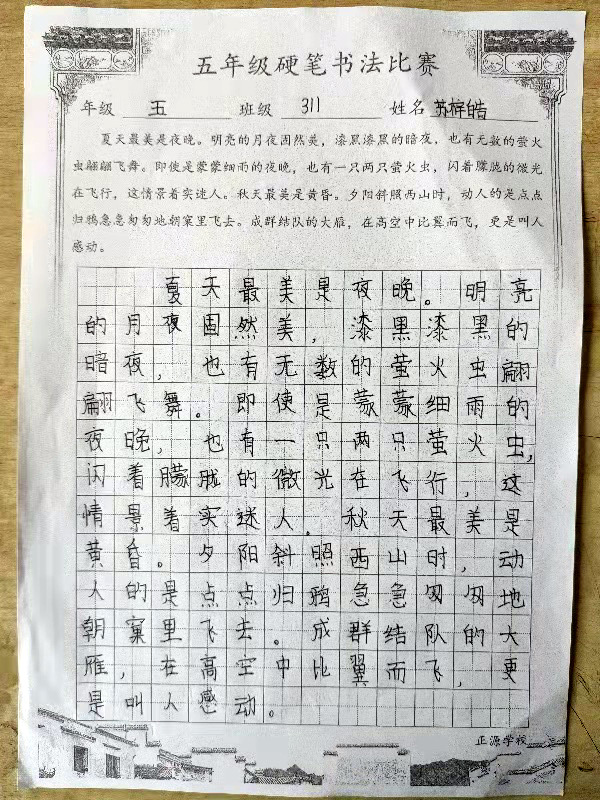 五年级硬笔书法比赛
年级 五 班级 311 姓名 苏梓皓
夏天最美是夜晚。明亮的月夜固然美，漆黑漆黑的暗夜，也有无数的萤火
虫翩翩飞舞。即使是蒙蒙细雨的夜晚，也有一只两只萤火虫，闪着朦胧的微光
在飞行，这情景着实迷人。秋天最美是黄昏。夕阳斜照西山时，动人的是点点
归鸦急急匆匆地朝窠里飞去。成群结队的大雁，在高空中比翼而飞，更是叫人
感动。
夏天最美是夜晚。明亮
的月夜固然美，漆黑漆黑的
暗夜，也有无数的萤火虫翩
翩飞舞。即使是蒙蒙细雨的
夜晚，也有一只两只萤火虫，
闪着朦胧的微光在飞行，这
情景着实迷人。秋天最美是
黄昏。夕阳斜照西山时，动
人的是点点归鸦急急匆匆地
朝窠里飞去。成群结队的大
雁，在高空中比翼而飞，更
是叫人感动。
正源学校